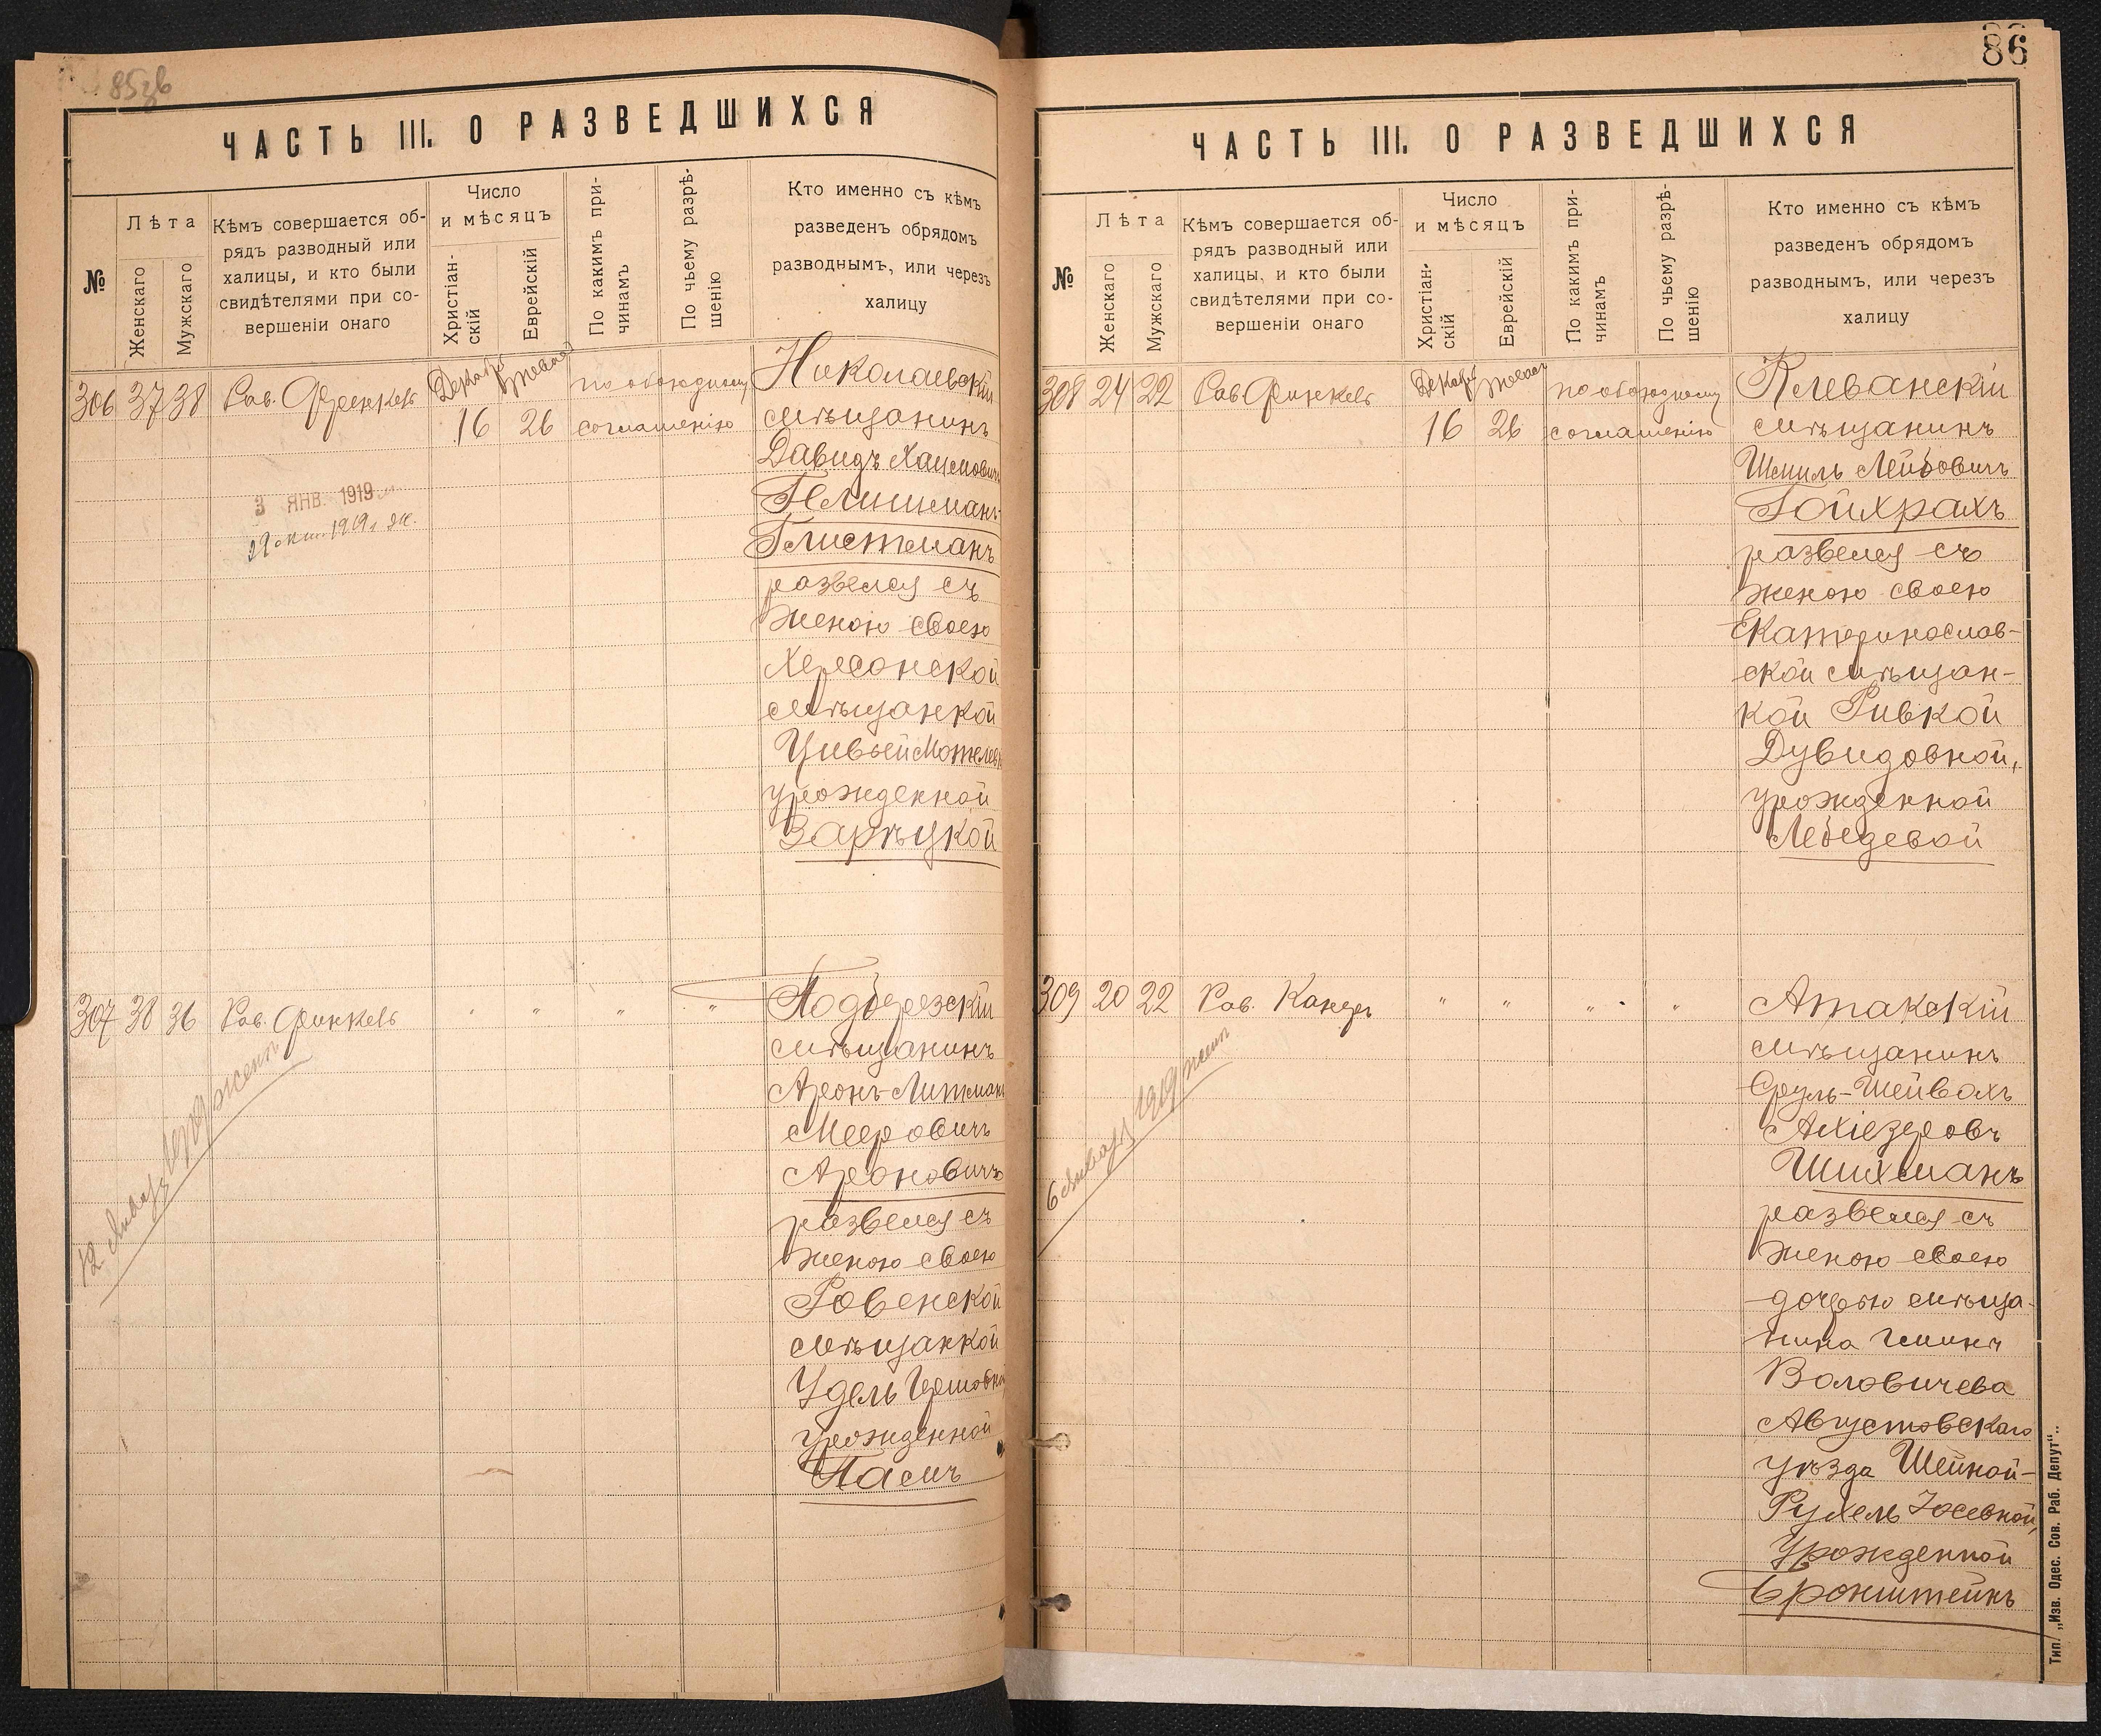 85зв
ЧАСТЬ III. О РАЗВЕДШИХСЯ
№
Лѣта
Женскаго
Мужскаго
Кѣмъ совершается об-
рядъ разводный или
халицы, и кто были
свидѣтелями при со-
вершеніи онаго
Число
и мѣсяцъ
Христіан-
скій
Еврейскій
По какимъ при-
чинамъ
По чьему разрѣ-
шенію
Кто именно съ кѣмъ
разведенъ обрядомъ
разводнымъ, или черезъ
халицу
306 37 38 Рав. Френкель
Декабрь
16 26
по обоюдному
соглашенію
Николаевскій
мѣщанинъ
Давидъ
Глишманъ-
Глистманъ
развелся съ
женою своею
Херсонской
мѣщанкой
Цивьей
урожденной
Зарѣцкой
3 ЯНВ. 1919
307 38 36 Рав. Финкель " " " "
12 Января 1919 жен
Подберезскій
мѣщанинъ
Аронъ-Литманъ
Мееровичъ
Ароновичъ
развелся съ
женою своею
Ровенской
мѣщанкой
Удель Гершовной
урожденной
Пасъ
86
ЧАСТЬ III. О РАЗВЕДШИХСЯ
№
Лѣта
Женскаго
Мужскаго
Кѣмъ совершается об-
рядъ разводный или
халицы, и кто были
свидѣтелями при со-
вершеніи онаго
Число
и мѣсяцъ
Христіан-
скій
Еврейскій
По какимъ при-
чинамъ
По чьему разрѣ-
шенію
Кто именно съ кѣмъ
разведенъ обрядомъ
разводнымъ, или черезъ
халицу
308 24 22 Рав. Финкель
Декабрь
16 26
по обоюдному
соглашенію
Клеванскій
мѣщанинъ
Шмиль Лейбовичъ
Гойхрахъ
развелся съ
женою своею
Екатеринослав-
ской мѣщан-
кой Ривкой
Дувидовной,
урожденной
Лебедевой
309 20 22 Рав. " " " "
6 Января 1919
Атакскій
мѣщанинъ
Сруль-Шейвахъ
Ахіезеровъ
Шихманъ
развелся съ
женою своею
дочерью мѣща-
нина гмины
Воловичева
Августовскаго
уѣзда Шейной-
Рухель Іосевной,
Урожденной
Бронштейнъ
Тип. „Изв. Одес. Сов. Раб. Депут“.